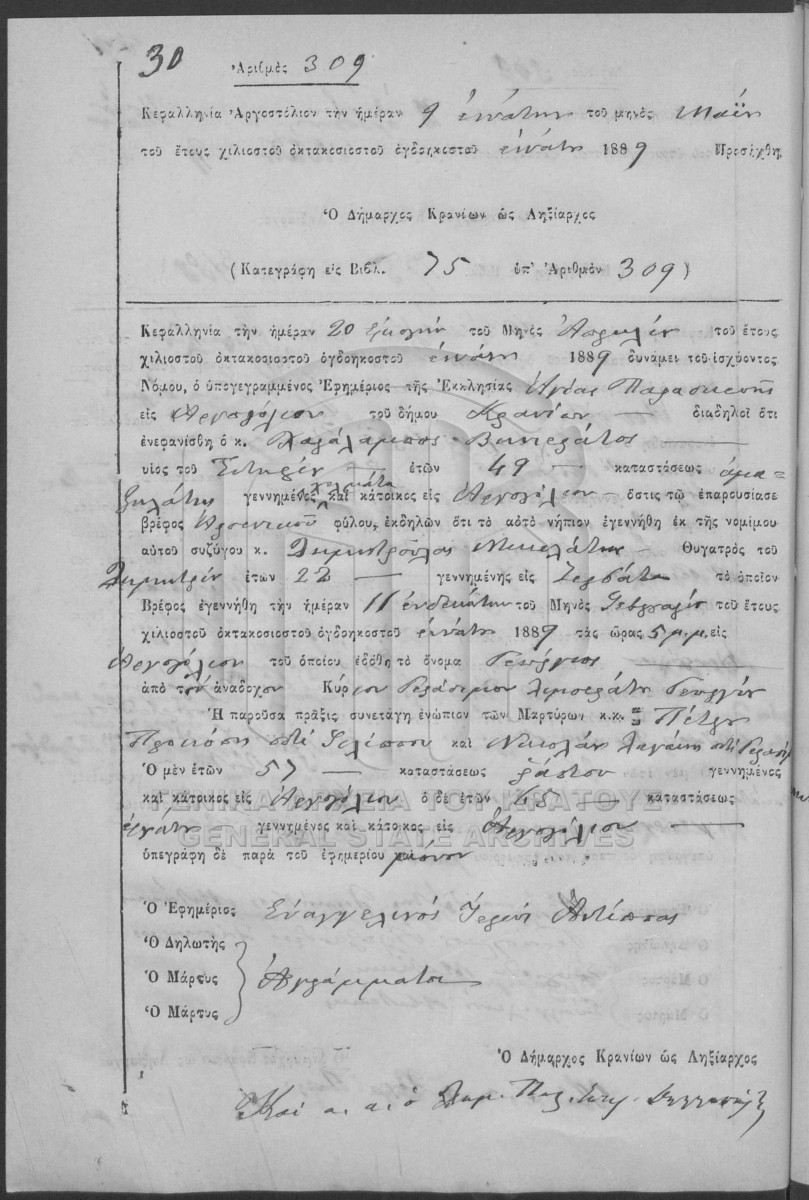 30 Ἀριθμὸς 309
Κεφαλληνία Ἀργοστόλιον τὴν ἡμέραν 9 ἐννάτην τοῦ μηνὸς Μαΐου
τοῦ ἔτους χιλιοστοῦ ὀκτακοσιοστοῦ ὀγδοηκοστοῦ ἐννάτου 1889 Προσήχθη
Ὁ Δήμαρχος Κρανίων ὡς Ληξίαρχος
(Κατεγράφη εἰς Βιβλ. 75 ὑπ' Ἀριθμὸν 309)
Κεφαλληνία τὴν ἡμέραν 20 εἰκοστὴν τοῦ Μηνὸς Ἀπριλίου τοῦ ἔτους
χιλιοστοῦ ὀκτακοσιοστοῦ ὀγδοηκοστοῦ ἐννάτου 1889 δυνάμει τοῦ ἰσχύοντος
Νόμου, ὁ ὑπογεγραμμένος Ἐφημέριος τῆς Ἐκκλησίας Ἁγίας Παρασκευῆς
εἰς Ἀργοστόλιον τοῦ δήμου Κρανίων διαδηλοῖ ὅτι
ἐνεφανίσθη ὁ κ. Χαράλαμπος Βινιεράτος
υἱὸς τοῦ Σωτηρίου ἐτῶν 49 καταστάσεως ἁμα-
ξηλάτης γεννημένος καὶ κάτοικος εἰς Ἀργοστόλιον ὅστις τῷ ἐπαρουσίασε
βρέφος Ἀρσενικοῦ φύλου, ἐκδηλῶν ὅτι τὸ αὐτὸ νήπιον ἐγεννήθη ἐκ τῆς νομίμου
αὐτοῦ συζύγου κ. Δημητρούλας Θυγατρὸς τοῦ
Δημητρίου ἐτῶν 22 γεννημένης εἰς Ζερβάτα τὸ ὁποῖον
Βρέφος ἐγεννήθη τὴν ἡμέραν 11 ἑνδεκάτην τοῦ Μηνὸς Φεβρουαρίου τοῦ ἔτους
χιλιοστοῦ ὀκτακοσιοστοῦ ὀγδοηκοστοῦ ἐννάτου 1889 τὰς ὥρας 5 μ.μ. εἰς
Ἀργοστόλιον τοῦ ὁποίου ἐδόθη τὸ ὄνομα Γεώργιος
ἀπὸ τὸν ἀνάδοχον Κύριον Γεράσιμον Γεωργίου
Ἡ παροῦσα πρᾶξις συνετάγη ἐνώπιον τῶν Μαρτύρων κ.κ. Πέτρου
ποτὲ Φιλίππου καὶ Νικολάου ποτὲ Γερασίμου
Ὁ μὲν ἐτῶν 57 καταστάσεως ῥάπτου γεννημένος
καὶ κάτοικος εἰς Ἀργοστόλιον ὁ δὲ ἐτῶν 45 καταστάσεως
ἐργάτου γεννημένος καὶ κάτοικος εἰς Ἀργοστόλιον
ὑπεγράφη δὲ παρὰ τοῦ ἐφημερίου μόνου
ΓΕΝΙΚΑ ΑΡΧΕΙΑ ΤΟΥ ΚΡΑΤΟΥΣ
GENERAL STATE ARCHIVES
Ὁ Ἐφημέριος Εὐαγγελινός Ἱερεύς Ἀντίππας
Ὁ Δηλωτὴς
Ὁ Μάρτυς Ἀγράμματοι
Ὁ Μάρτυς
Ὁ Δήμαρχος Κρανίων ὡς Ληξίαρχος